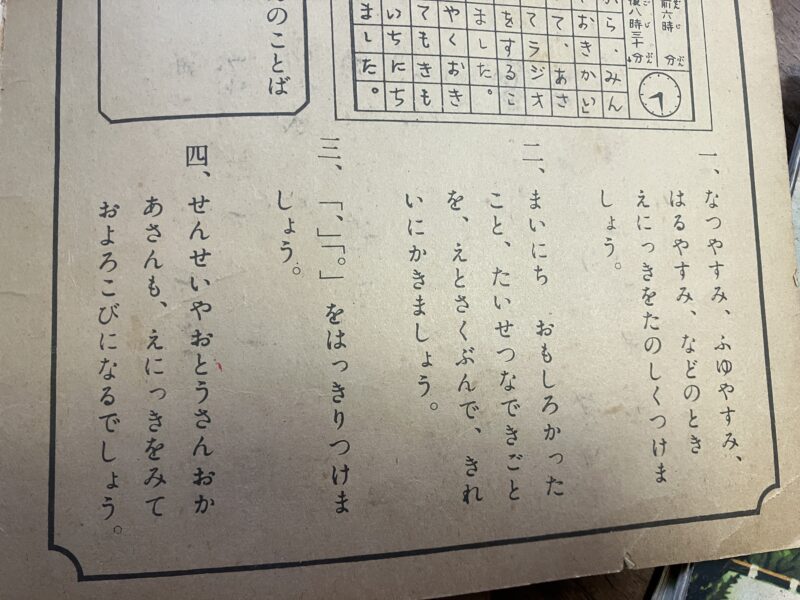 前六時　分
後八時三十分
ら、みん
て、あさ
てラジオ
をするこ
ました。
やくおき
てもきも
いちにち
ました。
のことば
一、なつやすみ、ふゆやすみ、
はるやすみ、などのとき
えにっきをたのしくつけま
しょう。
二、まいにち　おもしろかった
こと、たいせつなできごと
を、えとさくぶんで、きれ
いにかきましょう。
三、「、」「。」をはっきりつけま
しょう。
四、せんせいやおとうさんおか
あさんも、えにっきをみて
およろこびになるでしょう。